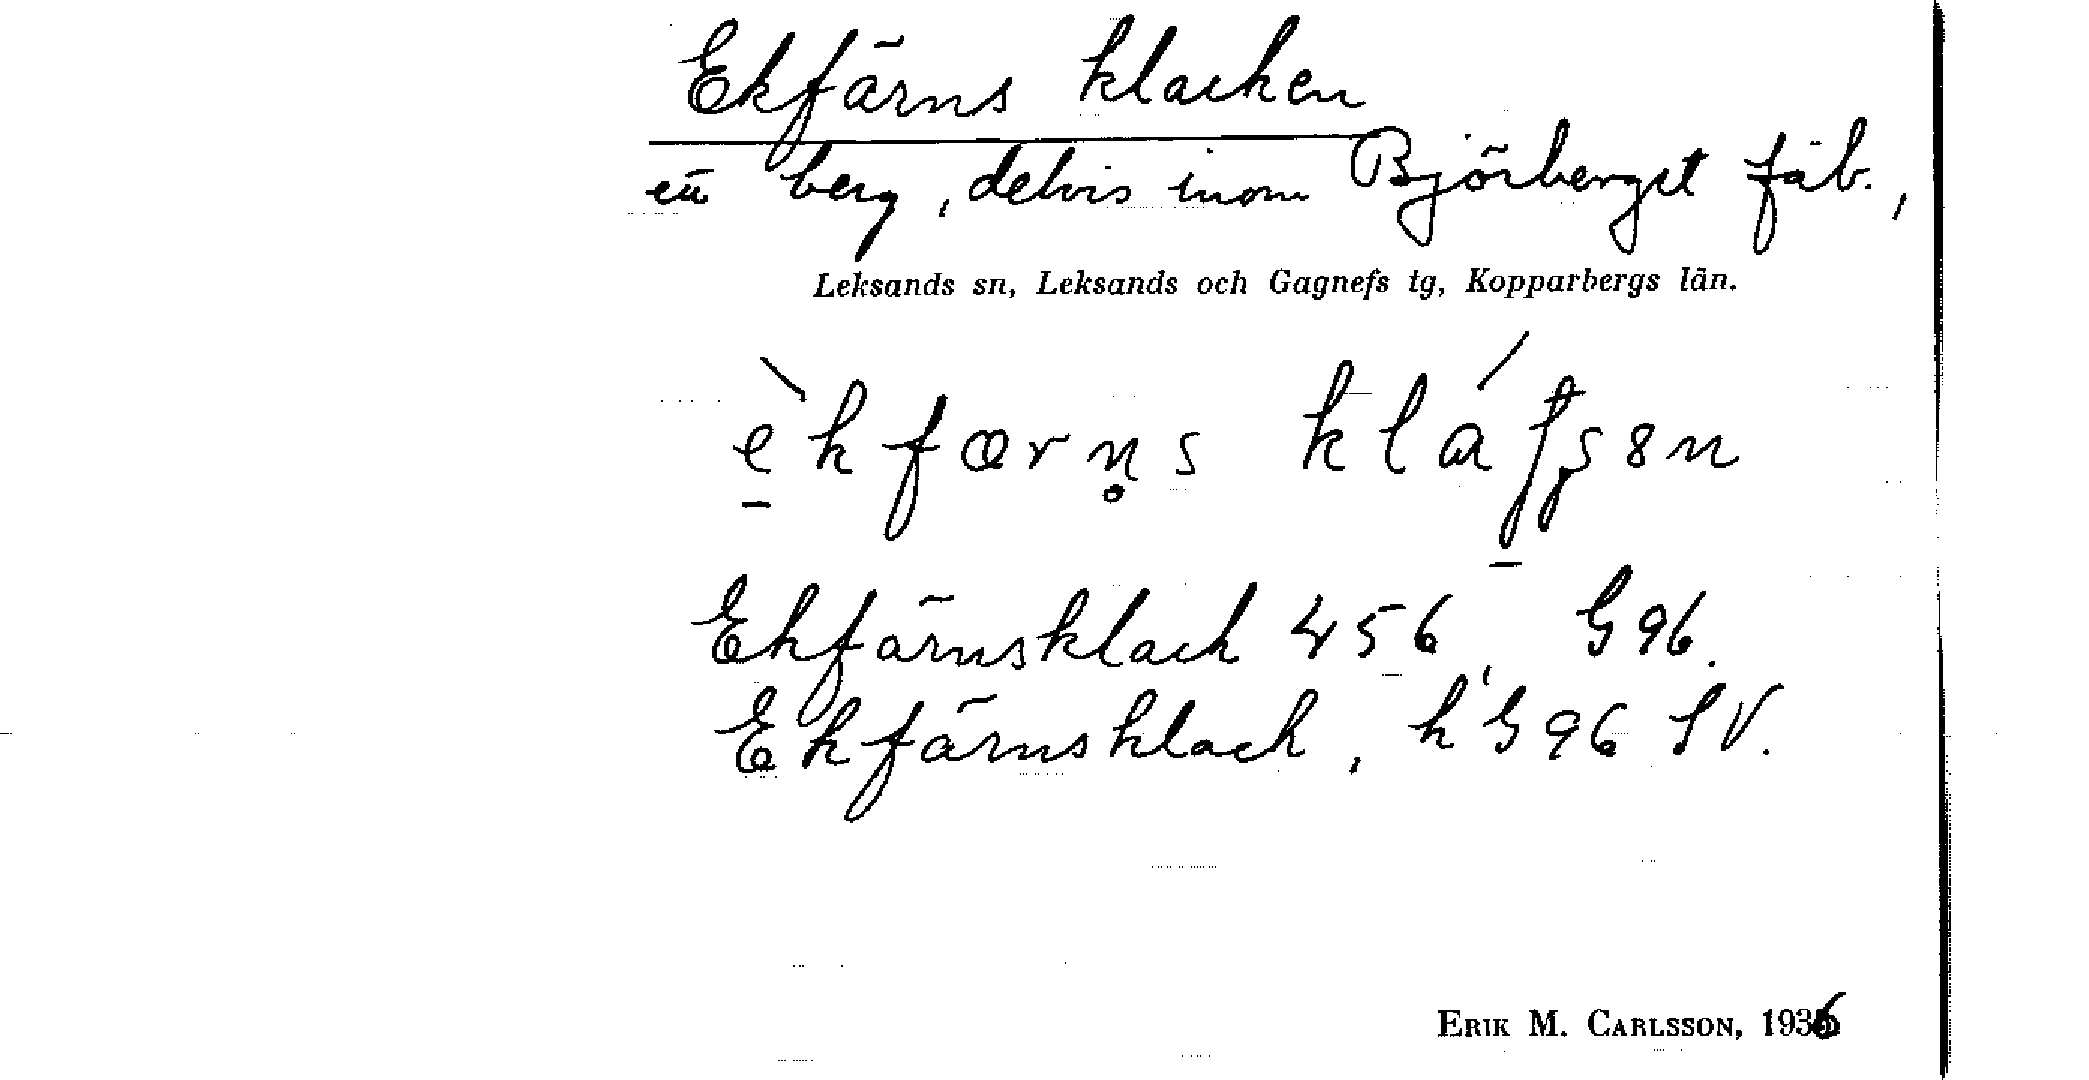 Ekfärns klacken
ett berg, delvis inom Björberget fäb.,
Leksands sn, Leksands och Gagnefs tg, Kopparbergs län.
Ekfärnsklack 456, G96.
Ekfärnsklack, k'G96 SV.
ERIK M. CARLSSON, 1936